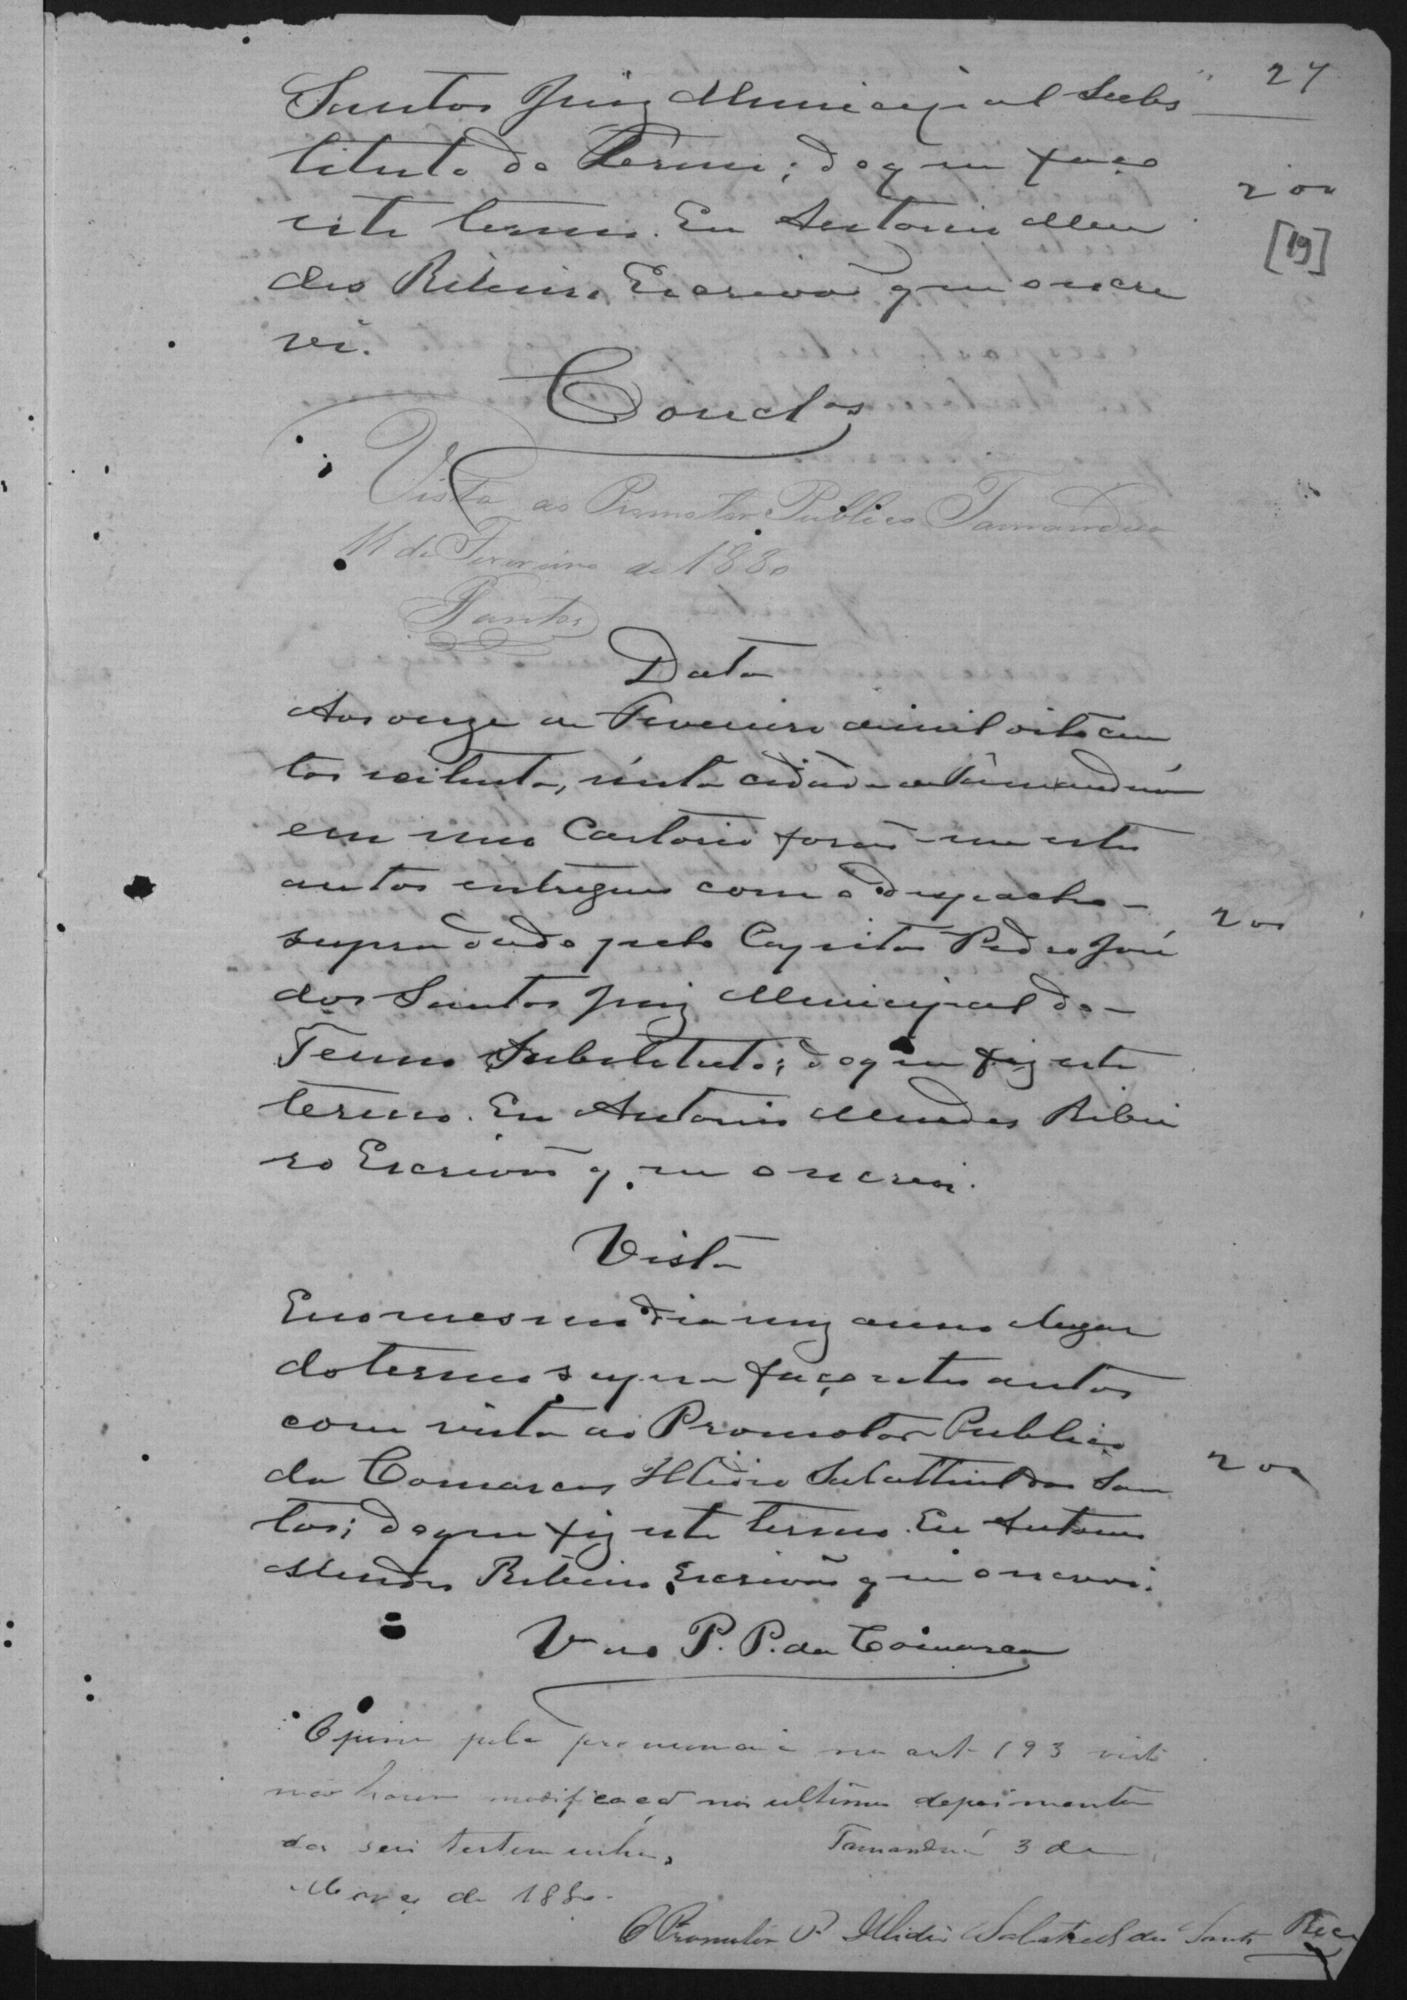 27
Santos Juiz Municipal Subs
tituto do Termo; do que faço
este termo. Eu Antonio Men
des Ribeiro Escrivão que o escre
vi.
200
[19]
Conclos
Vista ao Promotor Publico Tamanduá
11 de Fevereiro de 1880
Santos
Data
Aos onze de Fevereiro de mil oito cen
tos e oitenta, nésta cidade de Tamanduá
em meo Cartorio forão-me estes
autos entregues com o despacho
supra dado pelo Capitão Pedro José
dos Santos Juiz Municipal do
Termo Substituto; do que fiz este
termo. Eu Antonio Mendes Ribei
ro Escrivão que o escrevi.
200
Vista
Em o mesmo dia mez anno e lugar
do termo supra faço estes autos
com vista ao Promotor Publico
da Comarca Illidio Salathiel dos San
tos; do que fiz este termo. Eu Antonio
Mendes Ribeiro, Escrivão que o escrevi.
200
Vao P. P. da Comarca
Opino pela pronuncia no art 193 visto
não haver modificação nos ultimos depoimentos
das seis testemunhas. Tamanduá 3 de
Março de 1880.
O Promotor P. Illidio Salathiel dos Santos